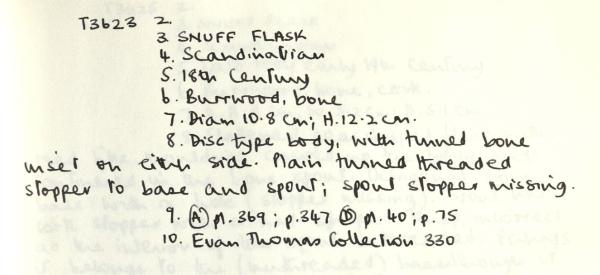 T3623 2.
3. SNUFF FLASK
4. Scandinavian
5. 18th Century
6. Burrwood, bone
7. Diam 10.8 cm; H.12.2 cm.
8. Disc type body, with turned bone
inset on either side. Plain turned threaded
stopper to base and spout; spout stopper missing.
9. Ⓐ pl.369; p.347 Ⓓ pl.40; p.75
10. Evan Thomas Collection 330